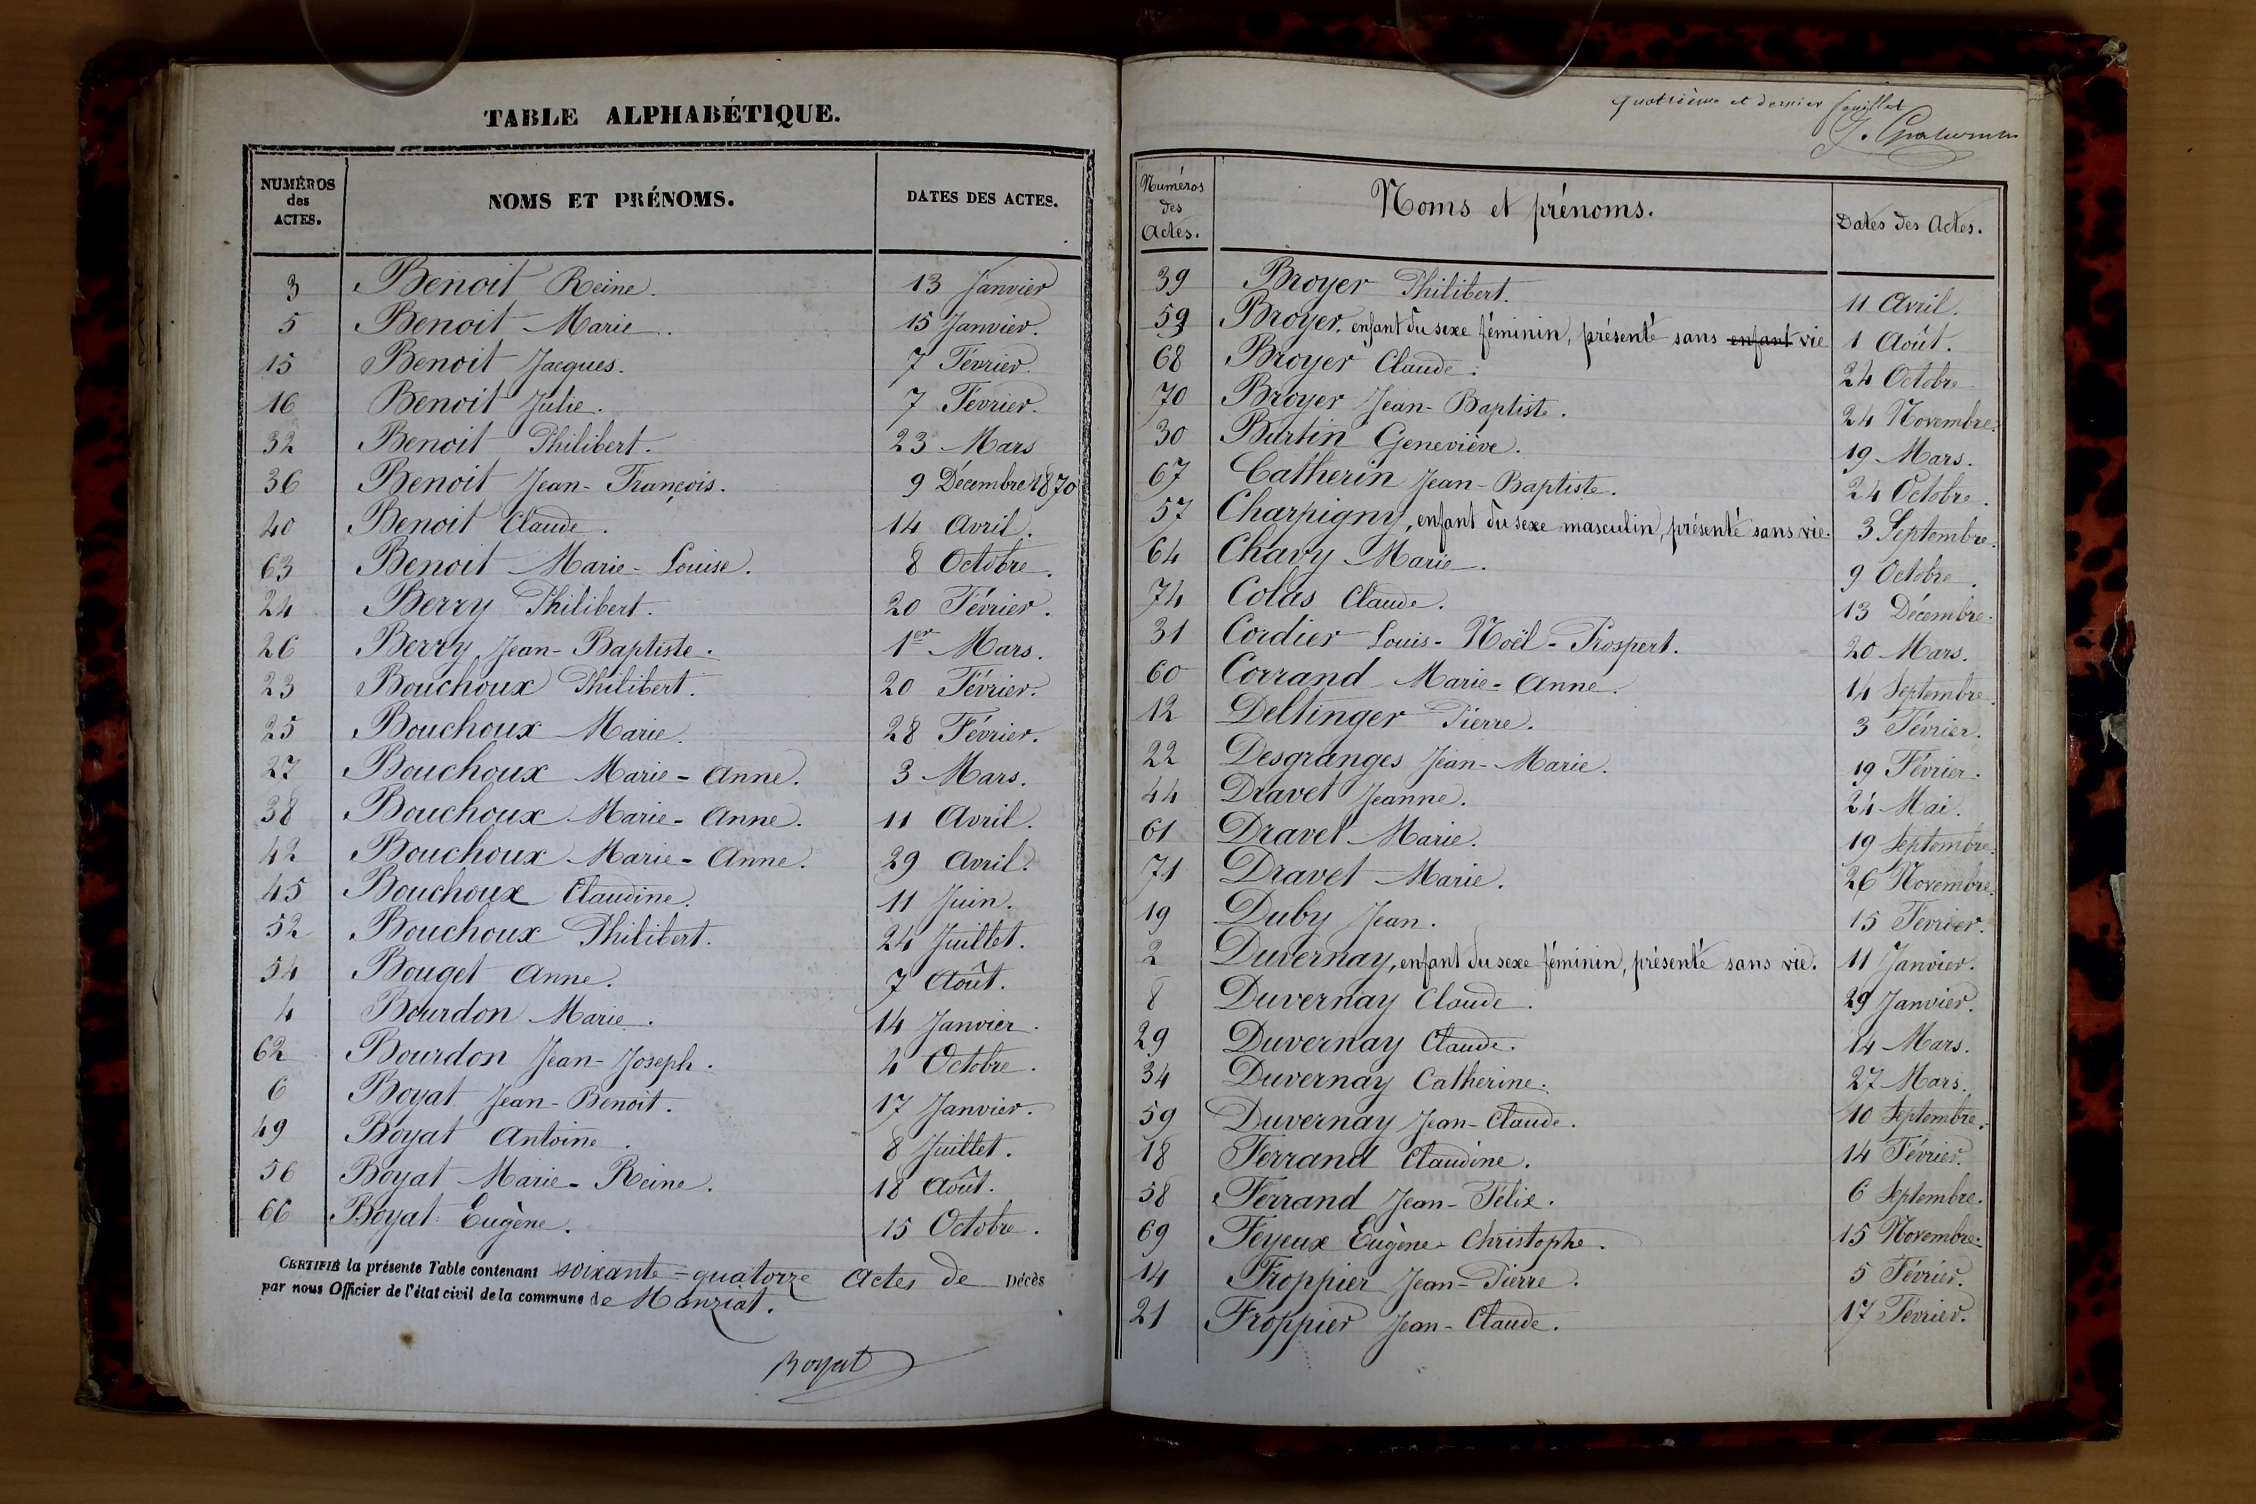 TABLE ALPHABÉTIQUE.
NUMÉROS des ACTES. NOMS ET PRÉNOMS. DATES DES ACTES.
3 Benoit Reine. 13 Janvier
5 Benoit Marie. 15 Janvier.
15 Benoit Jacques. 7 Février.
16 Benoit Julie. 7 Février.
32 Benoit Philibert. 23 Mars
36 Benoit Jean-François. 9 Décembre 1870
40 Benoit Claude. 14 Avril.
63 Benoit Marie-Louise. 8 Octobre.
24 Berry Philibert. 20 Février.
26 Berry Jean-Baptiste. 1er Mars.
23 Bouchoux Philibert. 20 Février.
25 Bouchoux Marie. 28 Février.
27 Bouchoux Marie-Anne. 3 Mars.
38 Bouchoux Marie-Anne. 11 Avril.
42 Bouchoux Marie-Anne. 29 Avril.
45 Bouchoux Claudine. 11 Juin.
52 Bouchoux Philibert. 24 Juillet.
54 Bouget Anne. 7 Août.
4 Bourdon Marie. 14 Janvier.
62 Bourdon Jean-Joseph. 4 Octobre.
6 Boyat Jean-Benoit. 17 Janvier.
49 Boyat Antoine. 8 Juillet.
56 Boyat Marie-Reine. 18 Août.
66 Boyat Eugène. 15 Octobre.
CERTIFIÉ la présente Table contenant soixante-quatorze Actes de Décès
par nous Officier de l'état civil de la commune de Manziat.
Boyat
quatrième et dernier feuillet
Numéros des Actes. Noms et prénoms. Dates des Actes.
39 Broyer Philibert. 11 Avril.
53 Broyer, enfant du sexe féminin, présenté sans enfant vie 1 Août.
68 Broyer Claude. 24 Octobre
70 Broyer Jean-Baptiste. 24 Novembre.
30 Burtin Geneviève. 19 Mars.
67 Catherin Jean-Baptiste. 24 Octobre.
57 Charpigny, enfant du sexe masculin, présenté sans vie. 3 Septembre.
64 Chavy Marie. 9 Octobre.
74 Colas Claude. 13 Décembre.
31 Cordier Louis-Noël-Prospert. 20 Mars.
60 Corrand Marie-Anne. 14 Septembre.
12 Deltinger Pierre. 3 Février.
22 Desgranges Jean-Marie. 19 Février.
44 Dravet Jeanne. 24 Mai.
61 Dravet Marie. 19 Septembre.
71 Dravet Marie. 26 Novembre.
19 Duby Jean. 15 Février.
2 Duvernay, enfant du sexe féminin, présenté sans vie. 11 Janvier.
8 Duvernay Claude. 29 Janvier.
29 Duvernay Claude. 14 Mars.
34 Duvernay Catherine. 27 Mars.
59 Duvernay Jean-Claude. 10 Septembre.
18 Ferrand Claudine. 14 Février.
58 Ferrand Jean-Félix. 6 Septembre.
69 Feyeux Eugène-Christophe. 15 Novembre.
14 Froppier Jean-Pierre. 5 Février.
21 Froppier Jean-Claude. 17 Février.